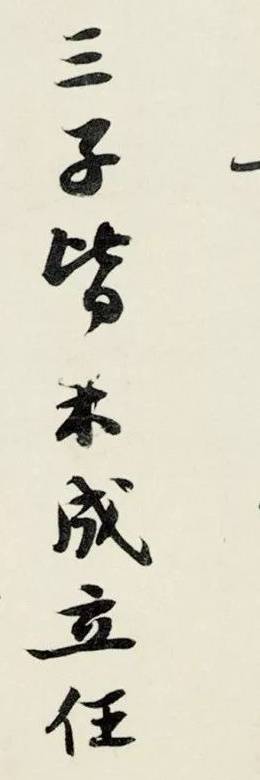 三子皆未成立任